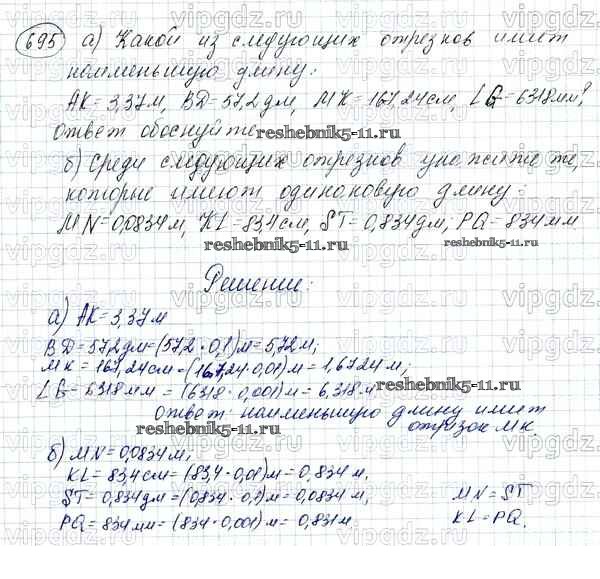 695 а) Какой из следующих отрезков имеет
наименьшую длину:
AK = 3,37м, BD = 57,2 дм, MK = 167,24см, LG = 6318мм?
Ответ обоснуйте.
reshebnik5-11.ru
б) Среди следующих отрезков укажите те,
которые имеют одинаковую длину:
MN = 0,0834 м, KL = 83,4 см, ST = 0,834дм, PQ = 834 мм
reshebnik5-11.ru
reshebnik5-11.ru
Решение:
а) AK = 3,37м
BD = 57,2 дм = (57,2 · 0,1)м = 5,72 м;
MK = 167,24см = (167,24 · 0,01)м = 1,6724 м;
LG = 6318 мм = (6318 · 0,001)м = 6,318 м
reshebnik5-11.ru
Ответ наименьшую длину имеет
отрезок MK.
б) MN = 0,0834м,
KL = 83,4см = (83,4 · 0,01)м = 0,834 м,
ST = 0,834дм = (0,834 · 0,1)м = 0,0834 м, MN = ST
PQ = 834 мм = (834 · 0,001)м = 0,834м. KL = PQ.
vipgdz.com